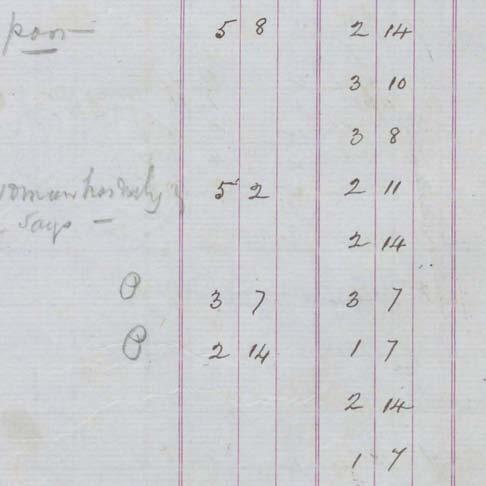 poor — 5 8 2 14
3 10
3 8
woman has only 5 2 2 11
says —
2 14
P 3 7 3 7
P 2 14 1 7
2 14
1 7